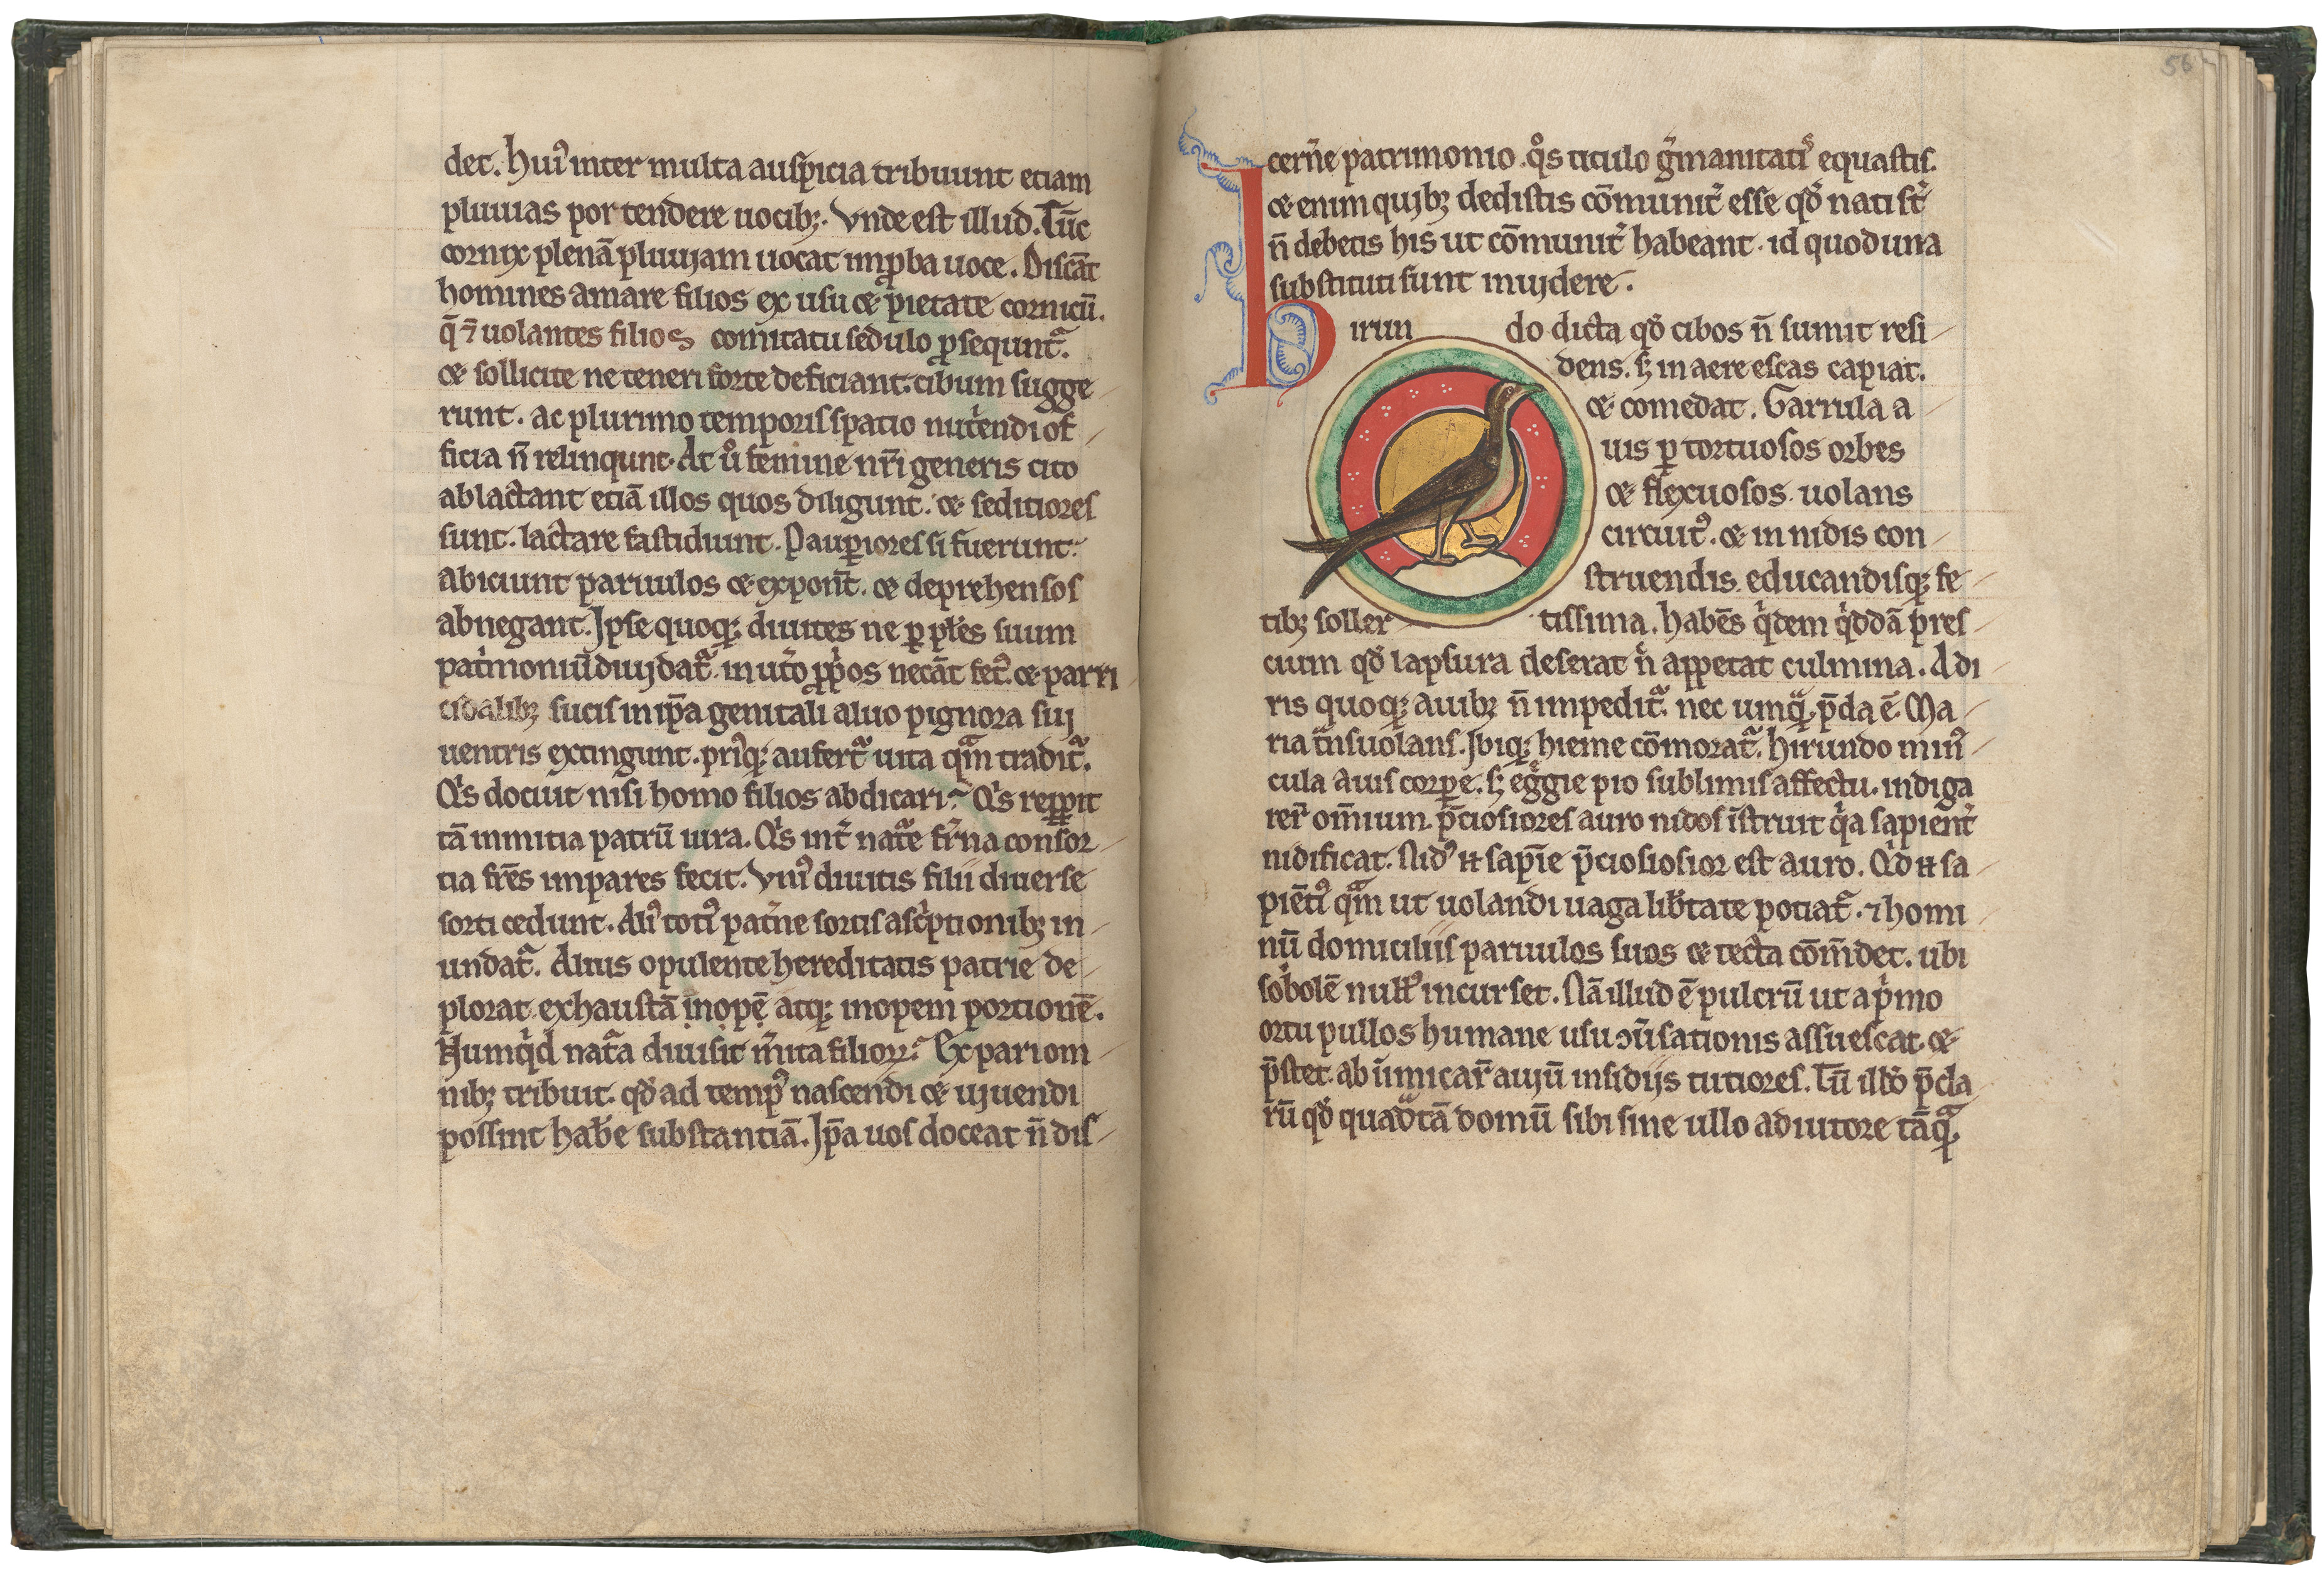 det. huiꝰ inter multa auspicia tribuunt etiam
pluuias portendere uocibꝫ. Vnde est illud. Tūc
cornix plenā pluuiam uocat imꝓba uoce. Discāt
homines amare filios ex usu ⁊ pietate cornicū.
q̄ ⁊ uolantes filios comitatu sedulo ꝓsequnt᷑.
⁊ sollicite ne teneri forte deficiant. cibum sugge
runt. ac plurimo temporis spatio nut͛endi of
ficia n̄ relinqunt. At u͛o femine nr̄i generis cito
ablactant etiā illos quos diligunt. ⁊ seditiores
sunt. lactare fastidiunt. Pauꝑiores si fuerunt.
abiciunt paruulos ⁊ exponūt. ⁊ deprehensos
abnegant. Ipse quoqꝫ diuites ne ꝑ pl̄es suum
pat͛moniū diuidat᷑. in ut͛o ꝓprios necāt fetꝰ. ⁊ parri
cidalibꝫ sucis in ip̄a genitali aluo pignora sui
uentris extingunt. priꝰqꝫ aufert᷑ uita qᵃm tradit᷑.
Qͥs docuit nisi homo filios abdicari? Qͥs repꝑit
tā inmitia patrū iura. Qͥs int͛ nat᷑e fr͛na consor
tia frēs impares fecit. Vniꝰ diuitis filii diuerse
sorti cedunt. Aliꝰ totiꝰ pat͛ne sortis asc͛ptionibꝫ in
undat᷑. Alius opulente hereditatis patrie de
plorat exhaustā inopē atqꝫ inopem portionē.
Numqͥd nat᷑a diuisit m͛ita filioꝝ? Ex pari om
nibꝫ tribuit. qd̄ ad tempꝰ nascendi ⁊ uiuendi
possint hab͛e substantiā. Ip̄a uos doceat n̄ dis
56
cern͛e patrimonio. qͦs titulo g͛manitatiˢ equastis.
⁊ enim quibꝫ dedistis cōmunit͛ esse qd̄ nati st͛
n̄ debetis his ut cōmunit͛ habeant. id quod una
substituti sunt inuidere.
Hirundo dicta qd̄ cibos n̄ sumit resi
dens. sꝫ in aere escas capiat.
⁊ comedat. Garrula a
uis ꝑ tortuosos orbes
⁊ flexuosos uolans
circuitꝰ. ⁊ in nidis con
struendis. educandisqꝫ fe
tibꝫ sollertissima. habēs qͥdem qͥddā pres
cium qd̄ lapsura deserat n͛ appetat culmina. A di
ris quoqꝫ auibꝫ n̄ impedit᷑. nec umqᵃ p̄da ē. Ma
ria tᵃnsuolans. Ibiqꝫ hieme cōmorat᷑. hirundo minꝰ
cula auis corꝑe. sꝫ egᵃgie pio sublimis affectu. indiga
rer͛ omnium p̄ciosiores auro nidos īstruit qͥa sapient͛
nidificat. Nidꝰ n̄ sapīe p̄ciosiosior est auro. Qͥd n̄ sa
piētiꝰ qᵃm ut uolandi uaga lib͛tate potiat᷑. ⁊ homi
nū domiciliis paruulos suos ⁊ tecta cōm̄det. ubi
sobolē nullꝰ incurset. Nā illud ē pulcrū ut a pͥmo
ortu pullos humane usu ꝯūsationis assuescat ⁊
p̄stet ab īimicar͛ auiū insidiis tutiores. Tū illd̄ p̄cla
rū qd̄ quadᵃtā domū sibi sine ullo adiutore tāqᵃ